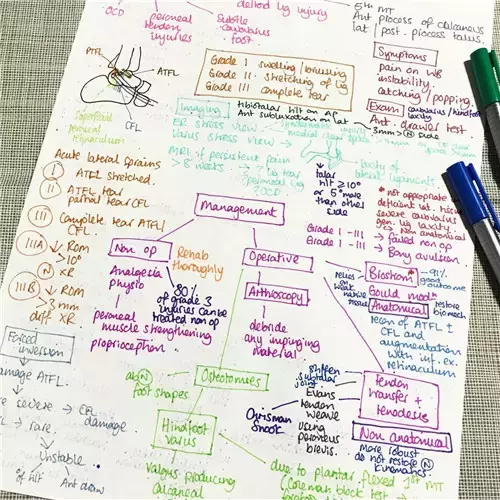 OCD
peroneal
tendon
injuries
deltoid lig injury
Subtle
cavovarus
foot
5th MT
Ant process of calcaneus
lat / post. process talus
PTFL
ATFL
CFL
Superficial
peroneal
retinaculum
Grade I swelling / bruising
Grade II stretching of lig
Grade III complete tear
Symptoms
pain on WB
instability
catching / popping.
Exam
cavovarus / hindfoot
laxity
Ant. drawer test
3mm > N side
Imaging
tibiotalar tilt on AP
Ant subluxation on lat
ER stress view →
Varus stress view →
MRI if persistent pain
> 8 weeks
? lig tear
? peroneal
? OCD
laxity of
lateral ligaments
talar
tilt ≥10°
or 5° more
than other
side
Acute lateral sprains
I ATFL stretched.
II ATFL tear
partial tear CFL
III Complete tear ATFL
CFL.
IIIA → ↓ ROM
>10°
N XR
IIIB → ↓ ROM
> 3mm
diff XR
Management
Non op
Rehab
thoroughly
Analgesia
physio
↓
peroneal
muscle strengthening
proprioception
80%
of grade 3
injuries can be
treated non op
Operative
Arthroscopy
↓
debride
any impinging
material
Grade I - III → failed non op
Grade I - III → Bony avulsion.
* not appropriate
deficient lat. tissue
severe cavovarus
gen. lig laxity
→ Non anatomical
Brostrom*
~91%
good outcome
Gould mod^n
Anatomical
relies on
weak
native
tissue
restore
biomech
recon of ATFL ±
CFL and
augmentation
with inf. ex.
retinaculum
Forced
inversion
damage ATFL.
severe → CFL
damage
→ rare.
↓
Unstable
of tilt
Ant draw
Osteotomies
abN
foot shapes
Hindfoot
varus
↓
Valgus producing
calcaneal
Stiffen
subtalar
joint
Evans
tendon
weave
Chrisman
Snook
using
peroneus
brevis.
Tendon
transfer +
tenodesis
Non anatomical
more robust
do not restore N
kinematics.
due to plantar flexed 1st MT
(Coleman block test